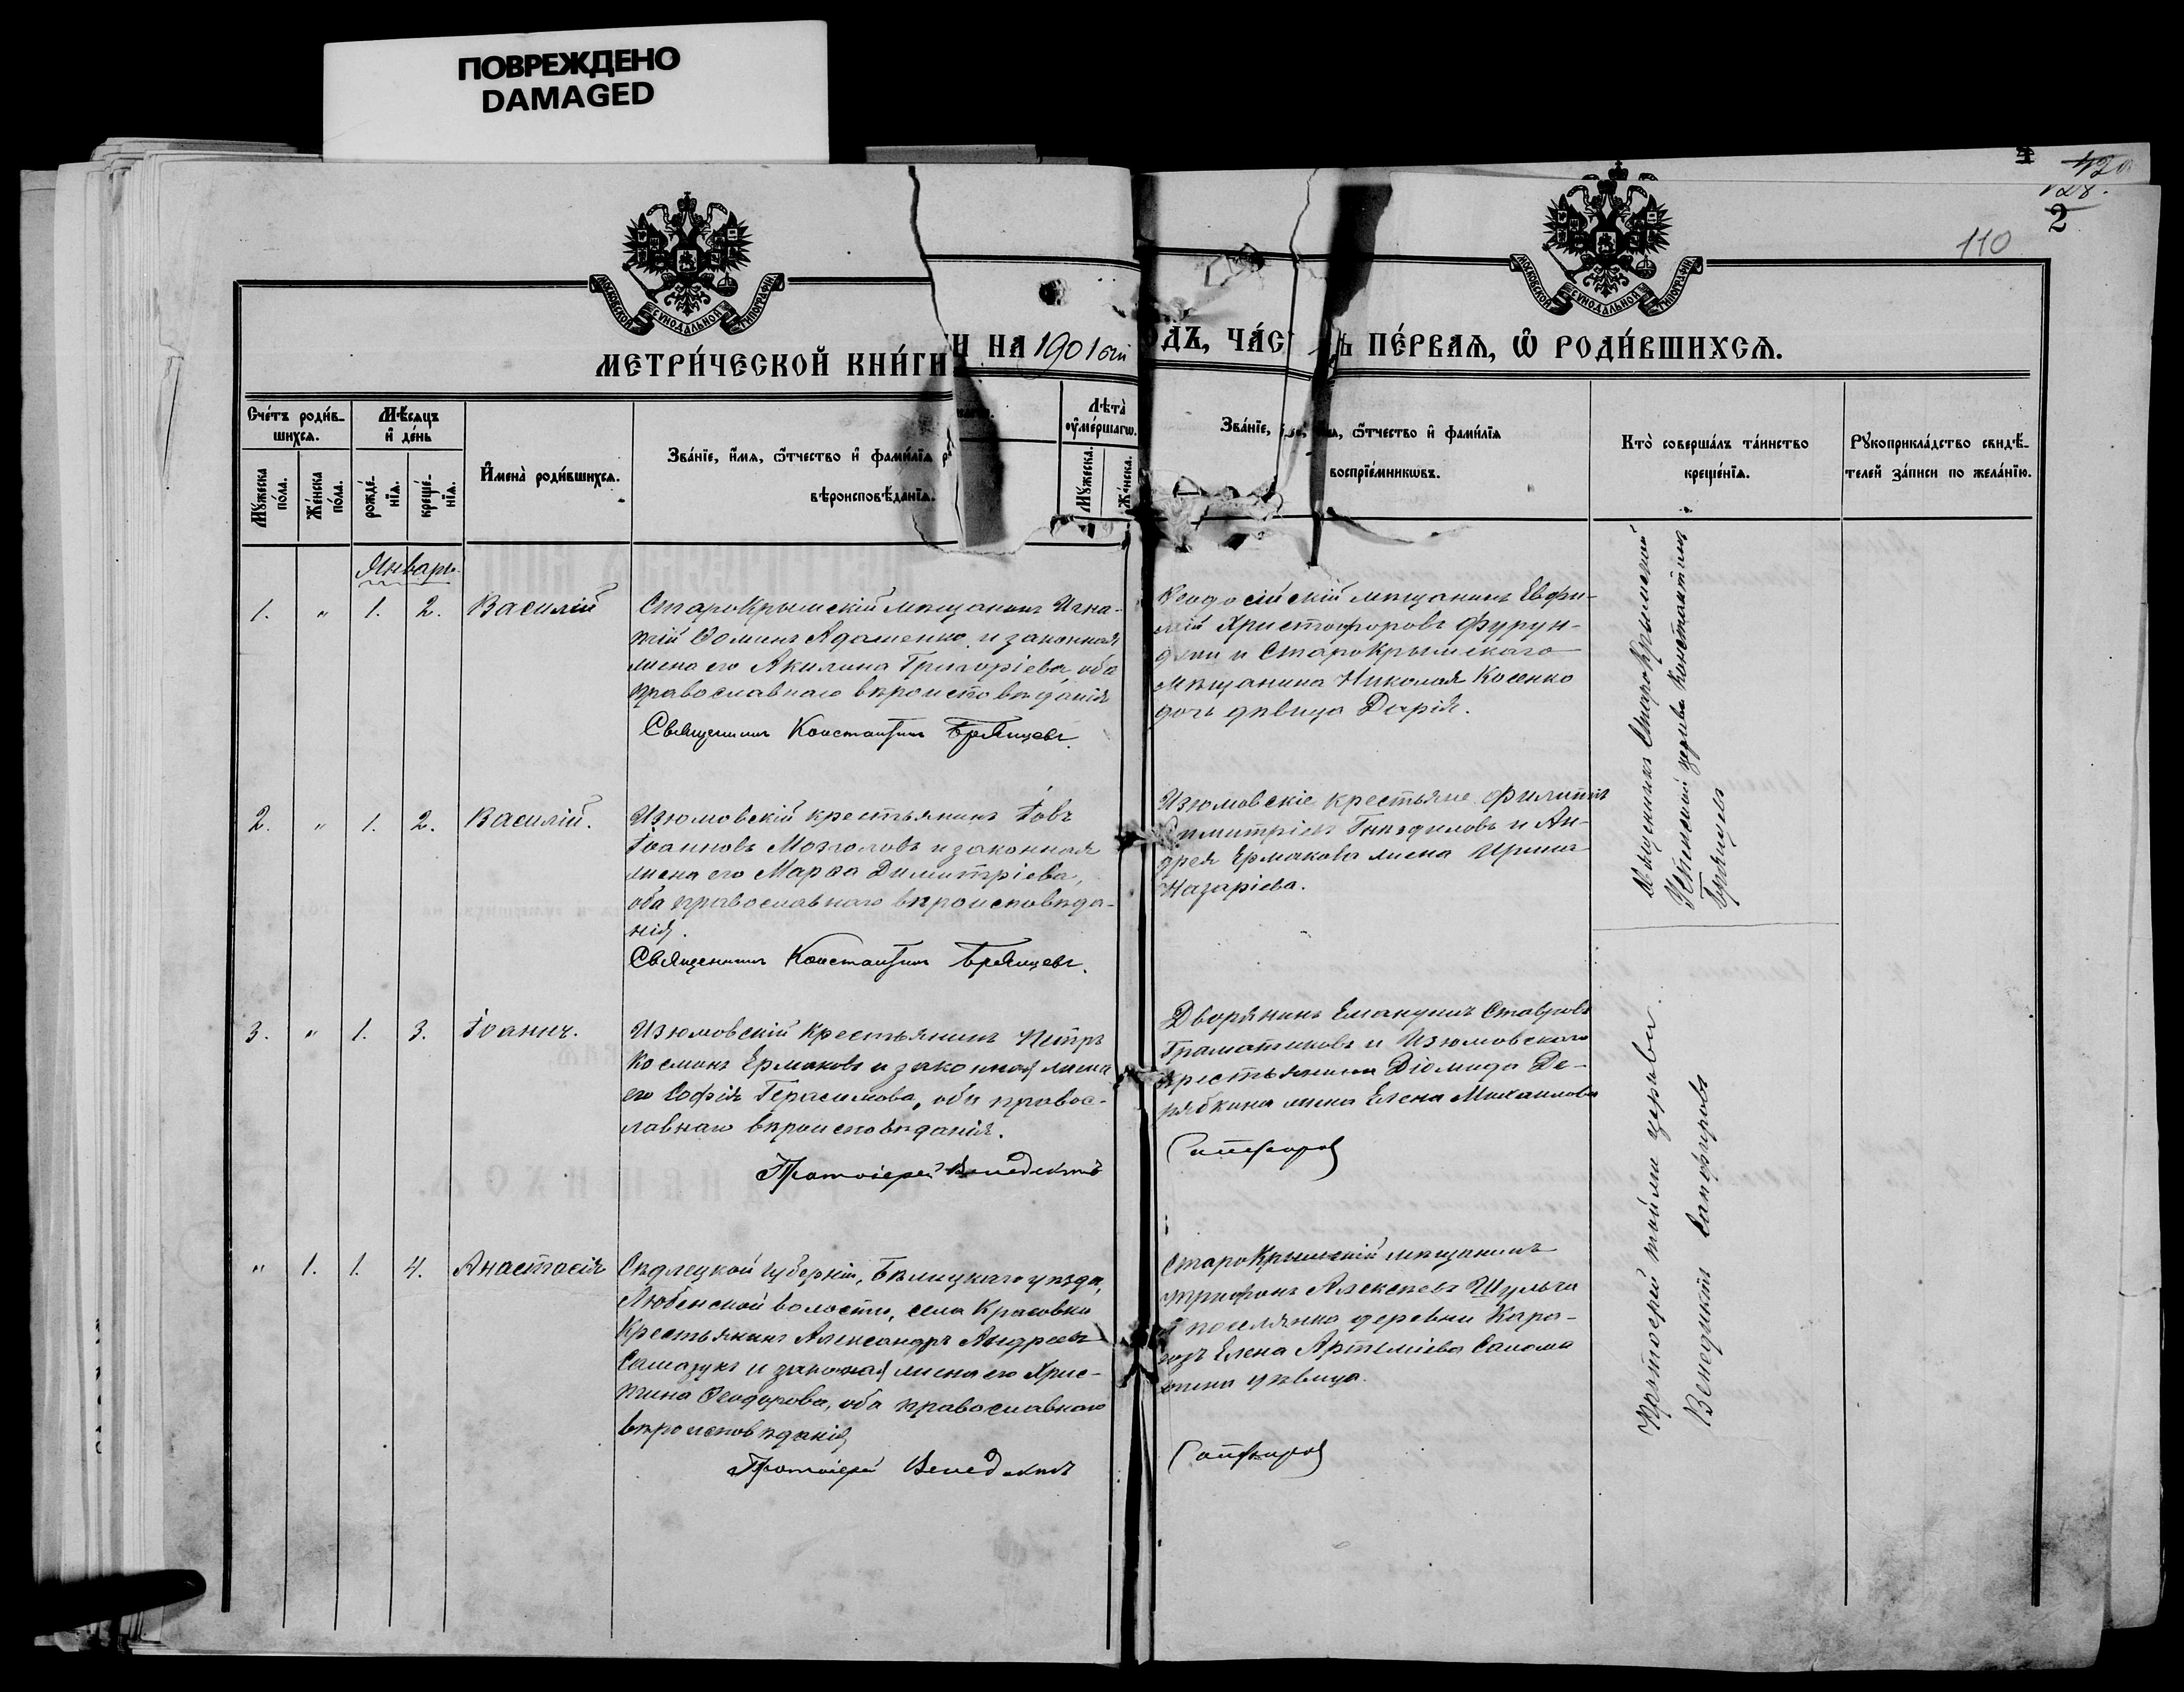 ПОВРЕЖДЕНО
DAMAGED
420
128.
2
110
МОСКОВСКОЙ СѴНОДАЛЬНОЙ ТИПОГРАФІИ
МОСКОВСКОЙ СѴНОДАЛЬНОЙ ТИПОГРАФІИ
МЕТРИ́ЧЕСКОЙ КНИ́ГИ НА 1901 ый
ОДЪ, ЧА́С Ь ПЕ́РВАѦ, Ѡ РОДИ́ВШИХСѦ.
Сче́тъ роди́в-
шихсѧ.
Мꙋ́жеска
по́ла.
Же́нска
по́ла.
Мѣ́сѧцъ
и҆ де́нь
рожде́-
нїѧ.
креще́-
нїѧ.
И҆мена̀ роди́вшихсѧ.
Зва́нїе, и҆́мѧ, ѻ҆́тчество и҆ фами́лїѧ
вѣроисповѣ́данїѧ.
Лѣта̀
ᲂу҆ме́ршагѡ.
Мꙋ́жеска.
Же́нска.
Зва́нїе, ѻ҆́тчество и҆ фами́лїѧ
воспрїе́мникѡвъ.
Кто̀ соверша́лъ та́инство
креще́нїѧ.
Рꙋкоприкла́дство свидѣ́-
телей за́писи по жела́нїю.
Январь
1. " 1. 2. Василій
СтароКрымскій мѣщанинъ Игна-
тій Ѳоминъ Адаменко и законная
жена его Акилина Григоріева, оба
православнаго вѣроисповѣданія
Священникъ Константинъ Брянцевъ.
Ѳеодосійскій мѣщанинъ Евфи-
мій Христофоровъ Фурун-
джи и СтароКрымскаго
мѣщанина Николая Косенко
дочь дѣвица Дарія.
Священникъ СтароКрымской
Успенской церкви Константинъ
Брянцевъ
2. " 1. 2. Василій.
Изюмовскій крестьянинъ Іовъ
Іоанновъ Мозголовъ и законная
жена его Марѳа Димитріева,
оба православнаго вѣроисповѣда-
нія.
Священникъ Константинъ Брянцевъ.
Изюмовскіе крестьяне Филиппъ
Димитріевъ Гнѣздиловъ и Ан-
дрея Ермакова жена Ирина
Назаріева.
3. " 1. 3. Іоаннъ.
Изюмовскій крестьянинъ Петръ
Косминъ Ермаковъ и законная жена
его Софія Герасимова, оба правос-
лавнаго вѣроисповѣданія.
Протоіерей Венедиктъ
Дворянинъ Емануилъ Ставровъ
Граматиковъ и Изюмовскаго
крестьянина Діомида Де-
рябкина жена Елена Михаилова
Сапфировъ
Протоіерей той же церкви
Венедиктъ Сапфировъ
" 1. 1. 4. Анастасія
Сѣдлецкой губерніи, Бѣльскаго уѣзда,
Любенской волости, села Красовки
Крестьянинъ Александръ Андреевъ
Самазукъ и законная жена его Хрис-
тина Ѳеодорова, оба православнаго
вѣроисповѣданія
Протоіерей Венедиктъ
СтароКрымскій мѣщанинъ
Трифонъ Алексѣевъ Шульга
и поселянка деревни Кара-
гозъ Елена Артеміева
дѣвица.
Сапфировъ